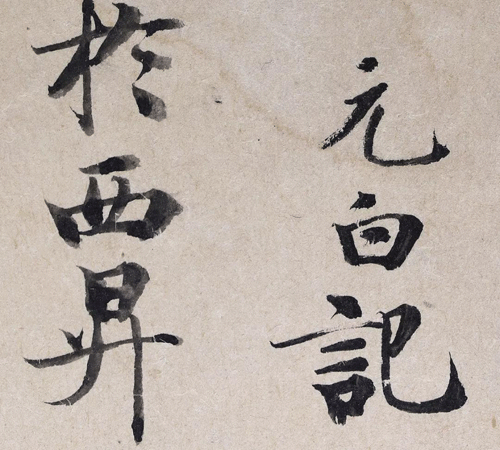 元白記
於西昇